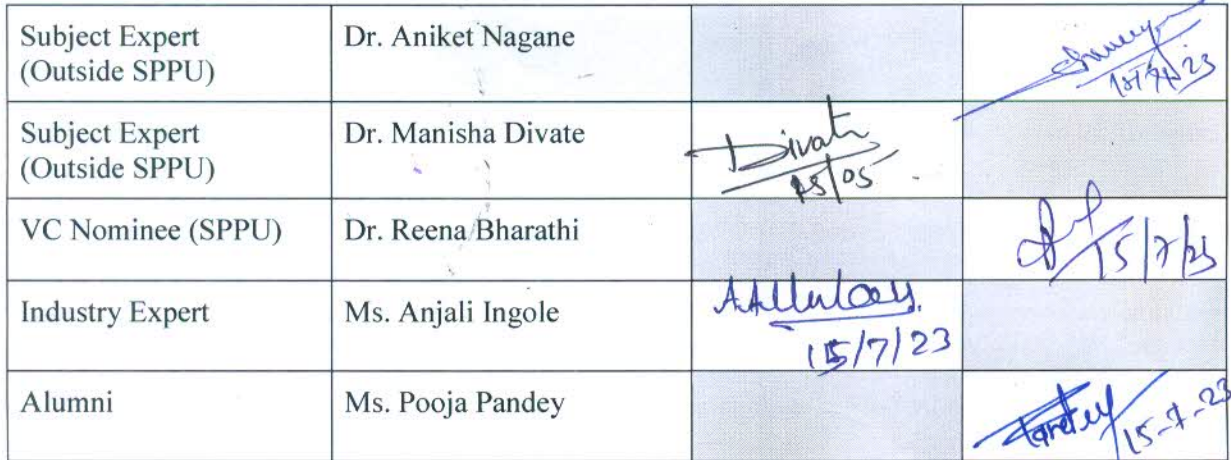 Subject Expert
(Outside SPPU)
Dr. Aniket Nagane
Subject Expert
(Outside SPPU)
Dr. Manisha Divate
Divate
VC Nominee (SPPU)
Dr. Reena Bharathi
15/7/23
Industry Expert
Ms. Anjali Ingole
15/7/23
Alumni
Ms. Pooja Pandey
15-7-23